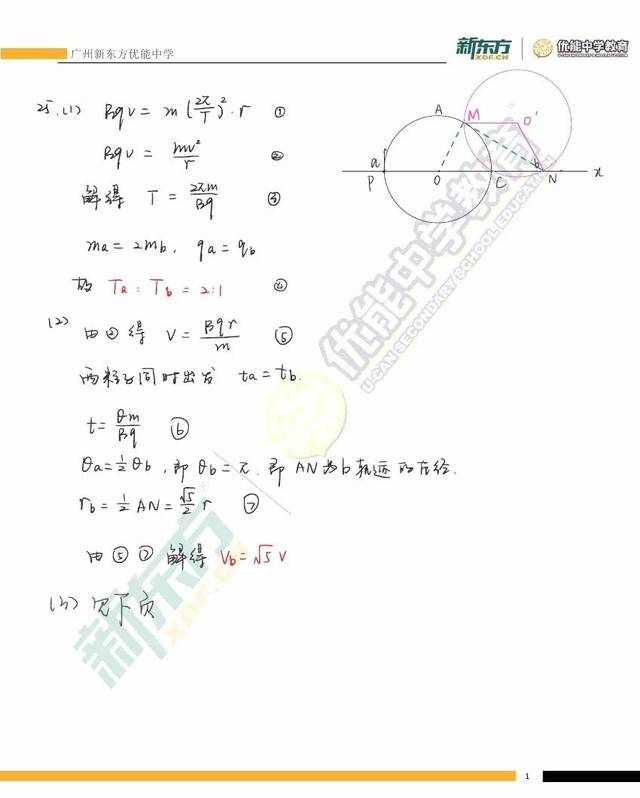 广州新东方优能中学
新东方 XDF.CN 优能中学教育
25.(1) Bqv = m(2π/T)²·r ①
Bqv = mv²/r ②
解得 T = 2πm/Bq ③
ma = 2mb, qa = qb
故 Ta : Tb = 2:1 ④
(2) 由②得 v = Bqr/m ⑤
两粒子同时出发 ta = tb.
t = θm/Bq ⑥
θa = ½θb, 即 θb = π. 即 AN为b轨迹的直径.
rb = ½AN = √5/2 r ⑦
由⑤⑦解得 Vb = √5 V
(3) 见下页
A M O'
a b
P O C N x
优能中学教育
U-CAN SECONDARY SCHOOL EDUCATION
新东方
XDF.CN
1